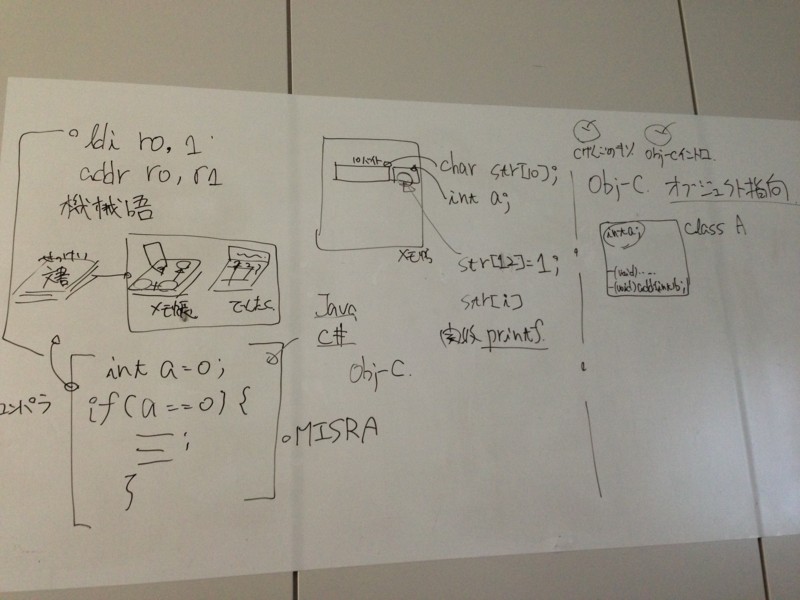 ldi r0, 1
addr r0, r1
機械語
せっけい
書
メモ帳
でんたく
コンパイラ
int a=0;
if(a==0) {
;
}
MISRA
Java
C#
Obj-C.
10バイト
char str[10];
int a;
メモ帳
str[12]=1;
str[i]
printf
Obj-Cイントロ
Obj-C. オブジェクト指向
int a;
class A
-(void)....
-(void)add:(int)b;